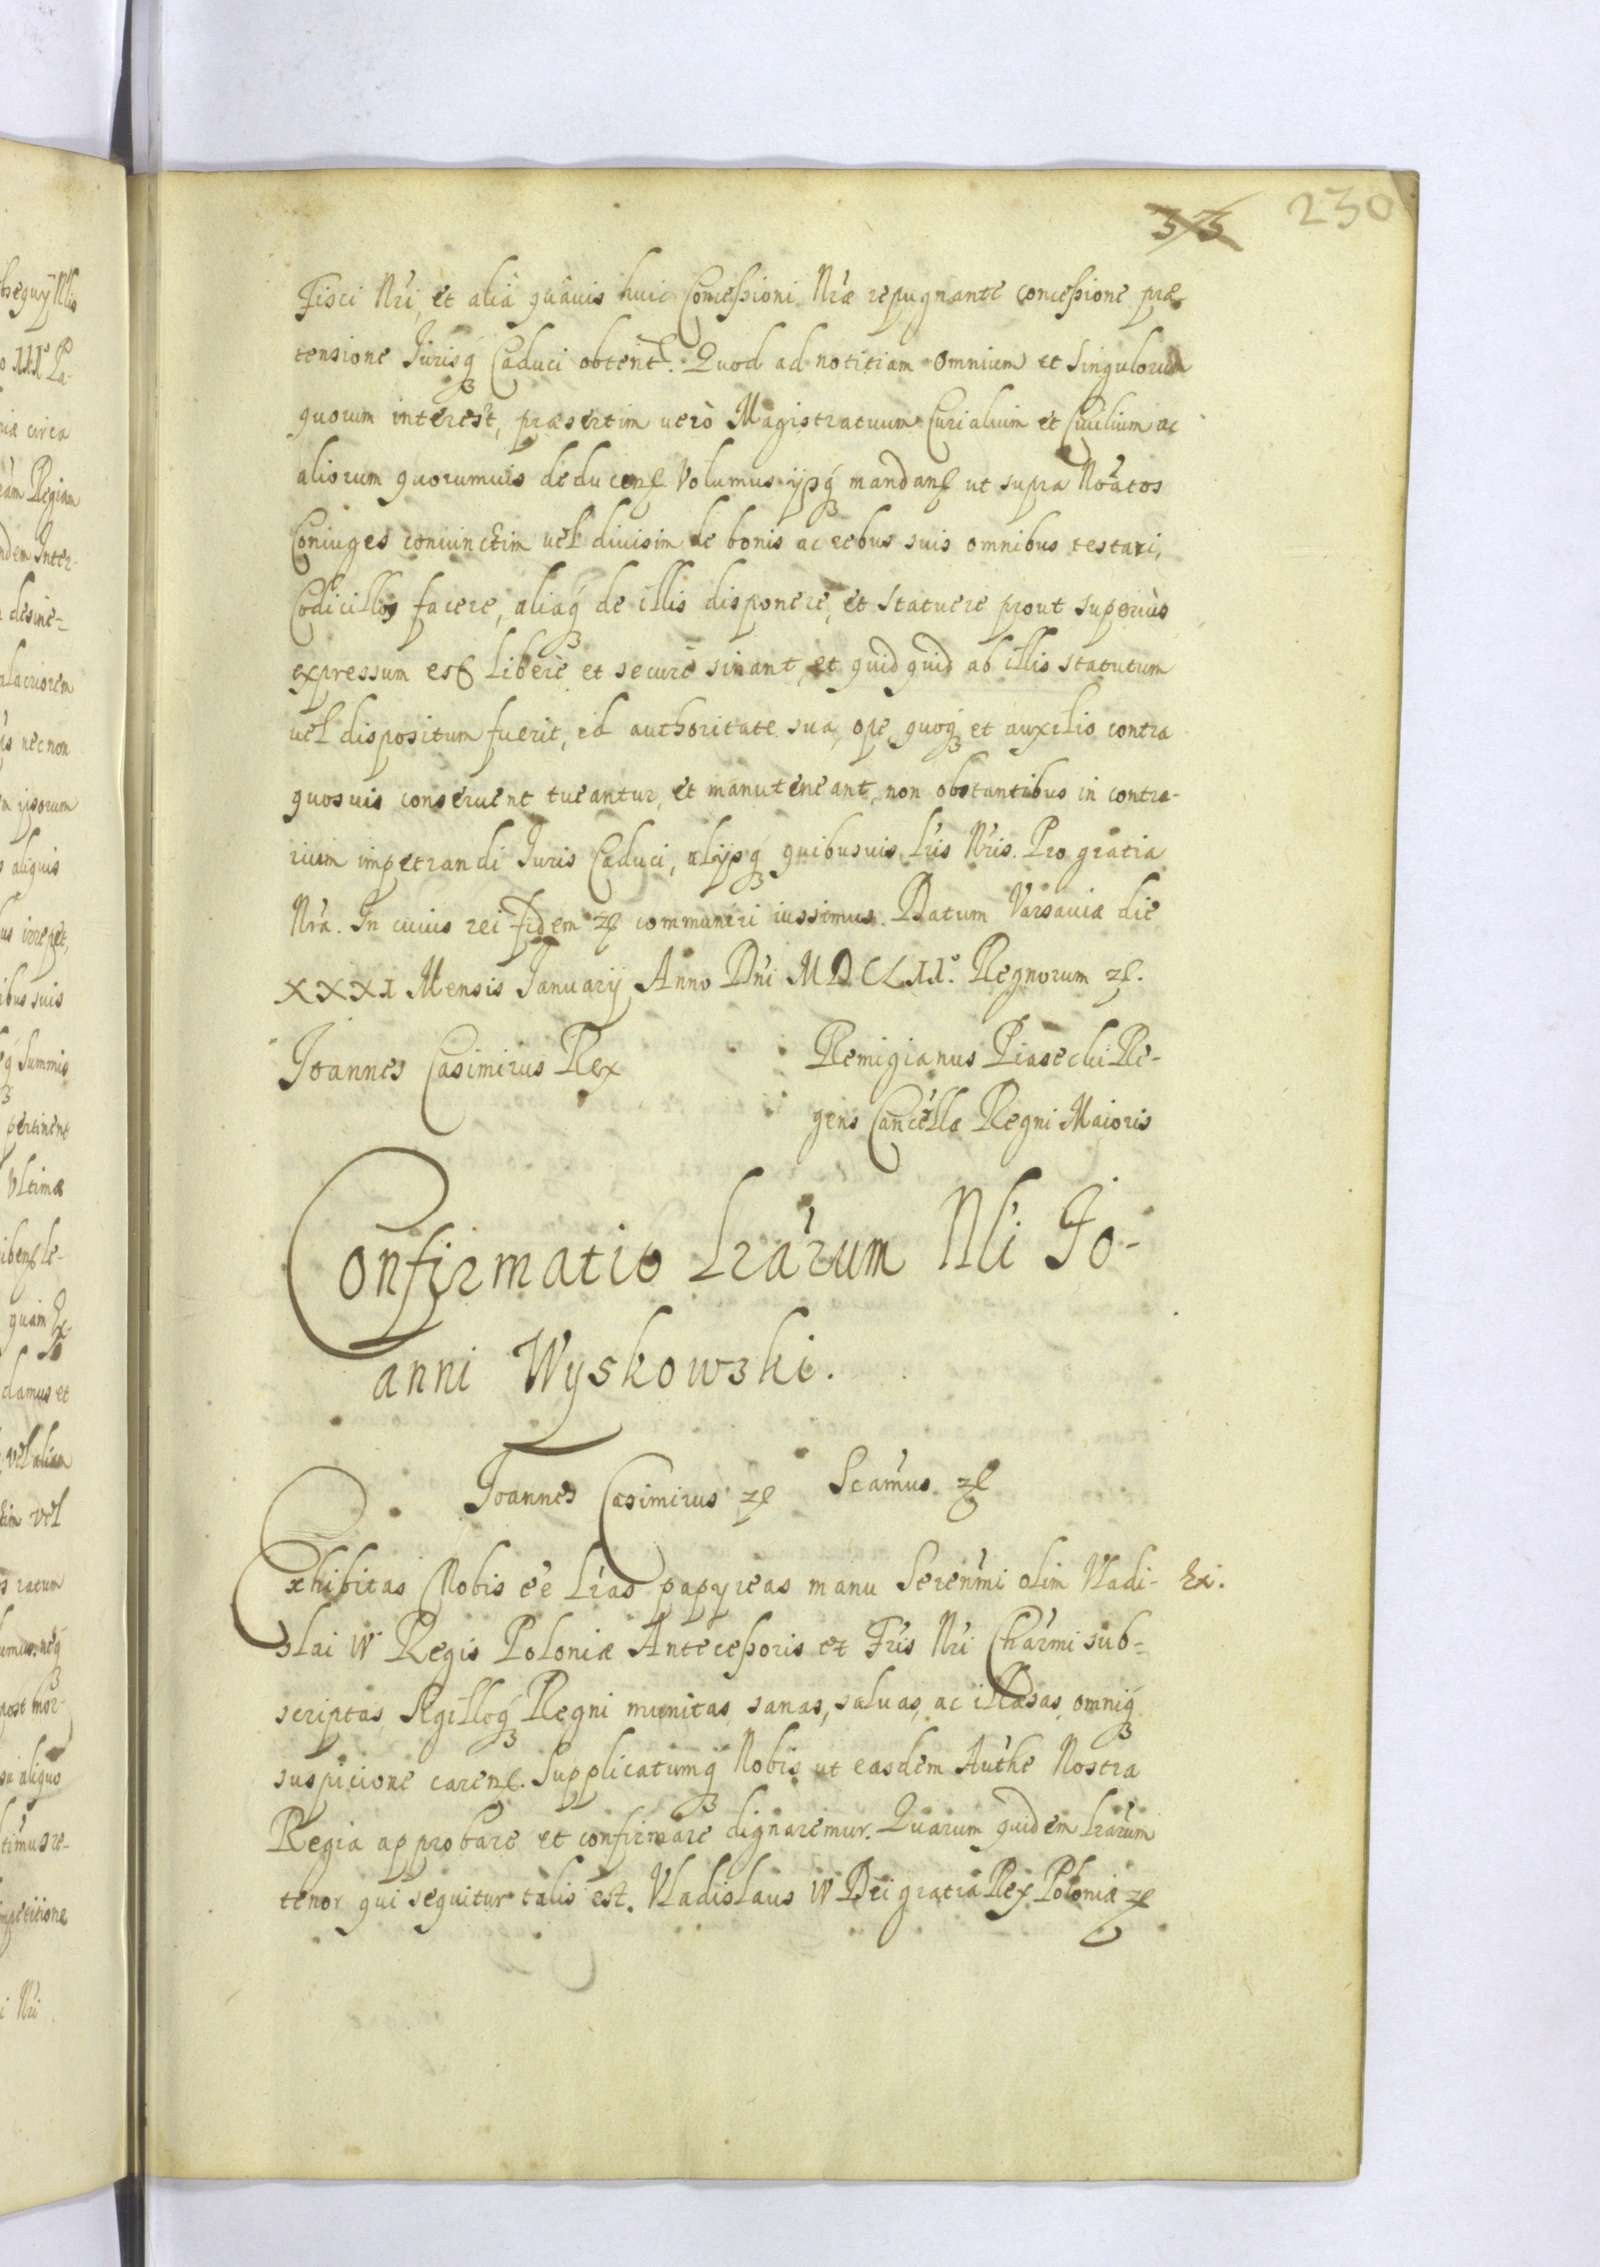 230
Fisci Nri, et aliâ quâuis huic Concessioni Nrae repugnante concessione prae
tensione Jurisq Caduci obtent. Quod ad notitiam omnium et Singulorum
quorum interest, praesertim uerò Magistratuum Curialium et Ciuilium ac
aliorum quorumuis deducen Volumus ijsq mandan ut supra Noatos
Coniuges coniunctim uel diuisim de bonis ac rebus suis omnibus testari,
Codicillos facere, aliaq de illis disponere, et Statuere prout superiùs
expressum est Liberè et securè sinant, et quidquid ab illis statutum
uel dispositum fuerit, id authoritate sua, ope quoq et auxilio contra
quosuis conseruent tueantur, et manuteneant, non obstantibus in contra-
rium impetrandi Juris Caduci, alijsq quibusuis Lris Nris. Pro gratia
Nra. In cuius rei fidem etc communiri iussimus. Datum Varsauiae die
XXXI Mensis Januarij Anno Dni MDCLII. Regnorum etc.
Joannes Casimirus Rex
Remigianus Piasecki Re-
gens Cancellae Regni Maioris
Confirmatio Lrarum Nli Jo-
anni Wyskowski.
Joannes Casimirus etc Scamus etc
Exhibitas Nobis ee Lras papyreas manu Serenmi olim Vladi- Ex.
slai IV Regis Poloniae Antecessoris et Fris Nri Charmi sub-
scriptas, Sigilloq Regni munitas, sanas, saluas, ac illaesas, omniq
suspicione caren. Supplicatumq Nobis ut easdem Authe Nostra
Regia approbare et confirmare dignaremur. Quarum quidem Lrarum
tenor qui sequitur talis est. Vladislaus IV Dei gratia Rex Poloniae etc